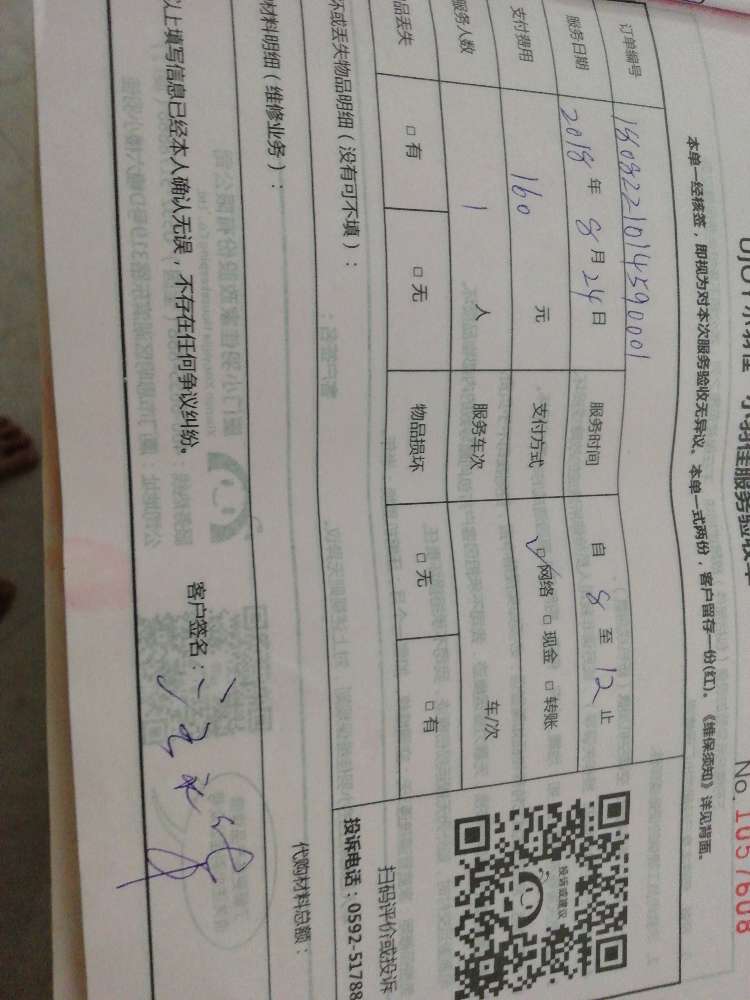 No. 1057608
本单一经核签，即视为对本次服务验收无异议。本单一式两份，客户留存一份(红)。《维保须知》详见背面。
订单编号 180822101459 0001
服务日期 2018 年 8 月 24 日 服务时间 自 8 至 12 止
支付费用 160 元 支付方式 ☑ 网络 □ 现金 □ 转账
服务人数 1 人 服务车次 车/次
品丢失 □ 有 □ 无 物品损坏 □ 无 □ 有
坏或丢失物品明细（没有可不填）：
投诉或建议
扫码评价或投诉
投诉电话：0592-51788
材料明细（维修业务）：
代购材料总额：
以上填写信息已经本人确认无误，不存在任何争议纠纷。 客户签名：